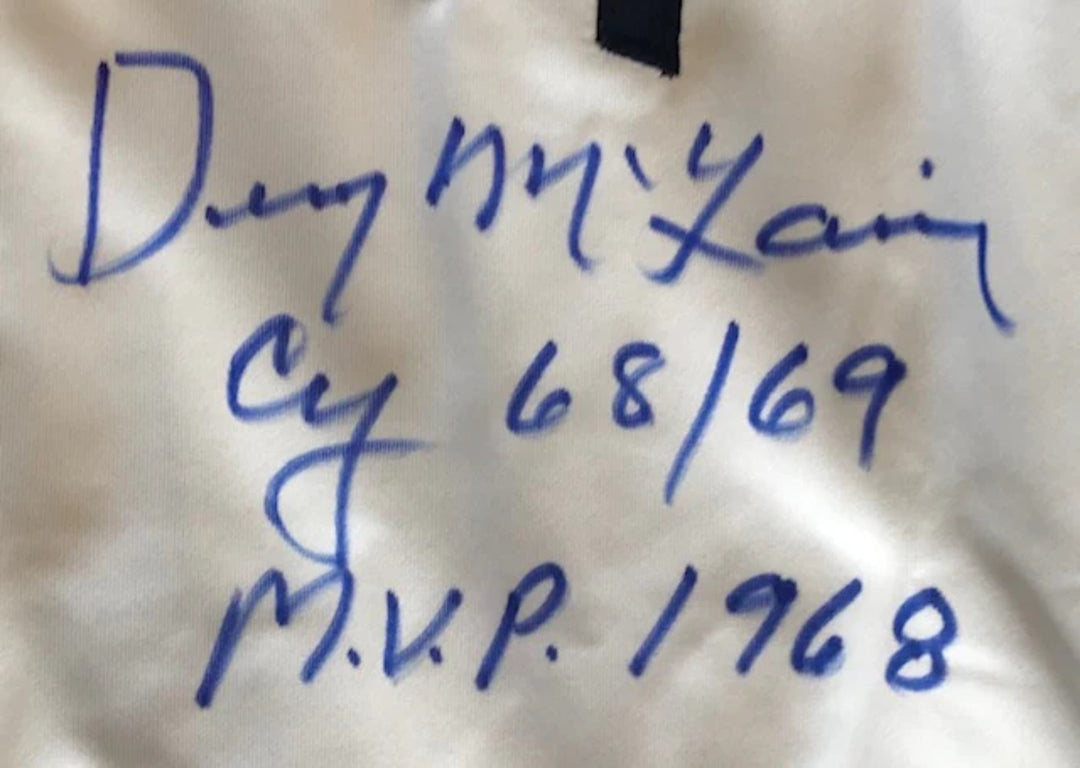 Denny McLain
Cy 68/69
M.V.P. 1968